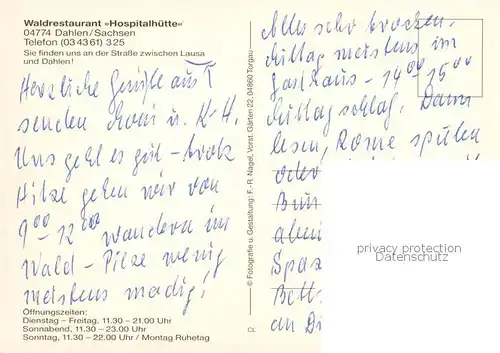 Waldrestaurant »Hospitalhütte«
04774 Dahlen/Sachsen
Telefon (03 43 61) 3 25
Sie finden uns an der Straße zwischen Lausa
und Dahlen!
Herzliche Grüße aus T
senden u. K-H.
Uns geht es gut - trotz
Hitze gehen wir von
9⁰⁰-12⁰⁰ wandern im
Wald - Pilze wenig
meistens madig!
Öffnungszeiten:
Dienstag – Freitag, 11.30 - 21.00 Uhr
Sonnabend, 11.30 - 23.00 Uhr
Sonntag, 11.30 - 22.00 Uhr / Montag Ruhetag
© Fotografie u. Gestaltung: F.-R. Nagel, Vorst. Gärten 22, 04860 Torgau
CL
Alles sehr trocken.
Mittag meistens im
Gasthaus - 14⁰⁰ 15⁰⁰
Mittagschlaf. Dann
lesen, spielen
oder
abend
Spaz
Bett
an Di
privacy protection
Datenschutz